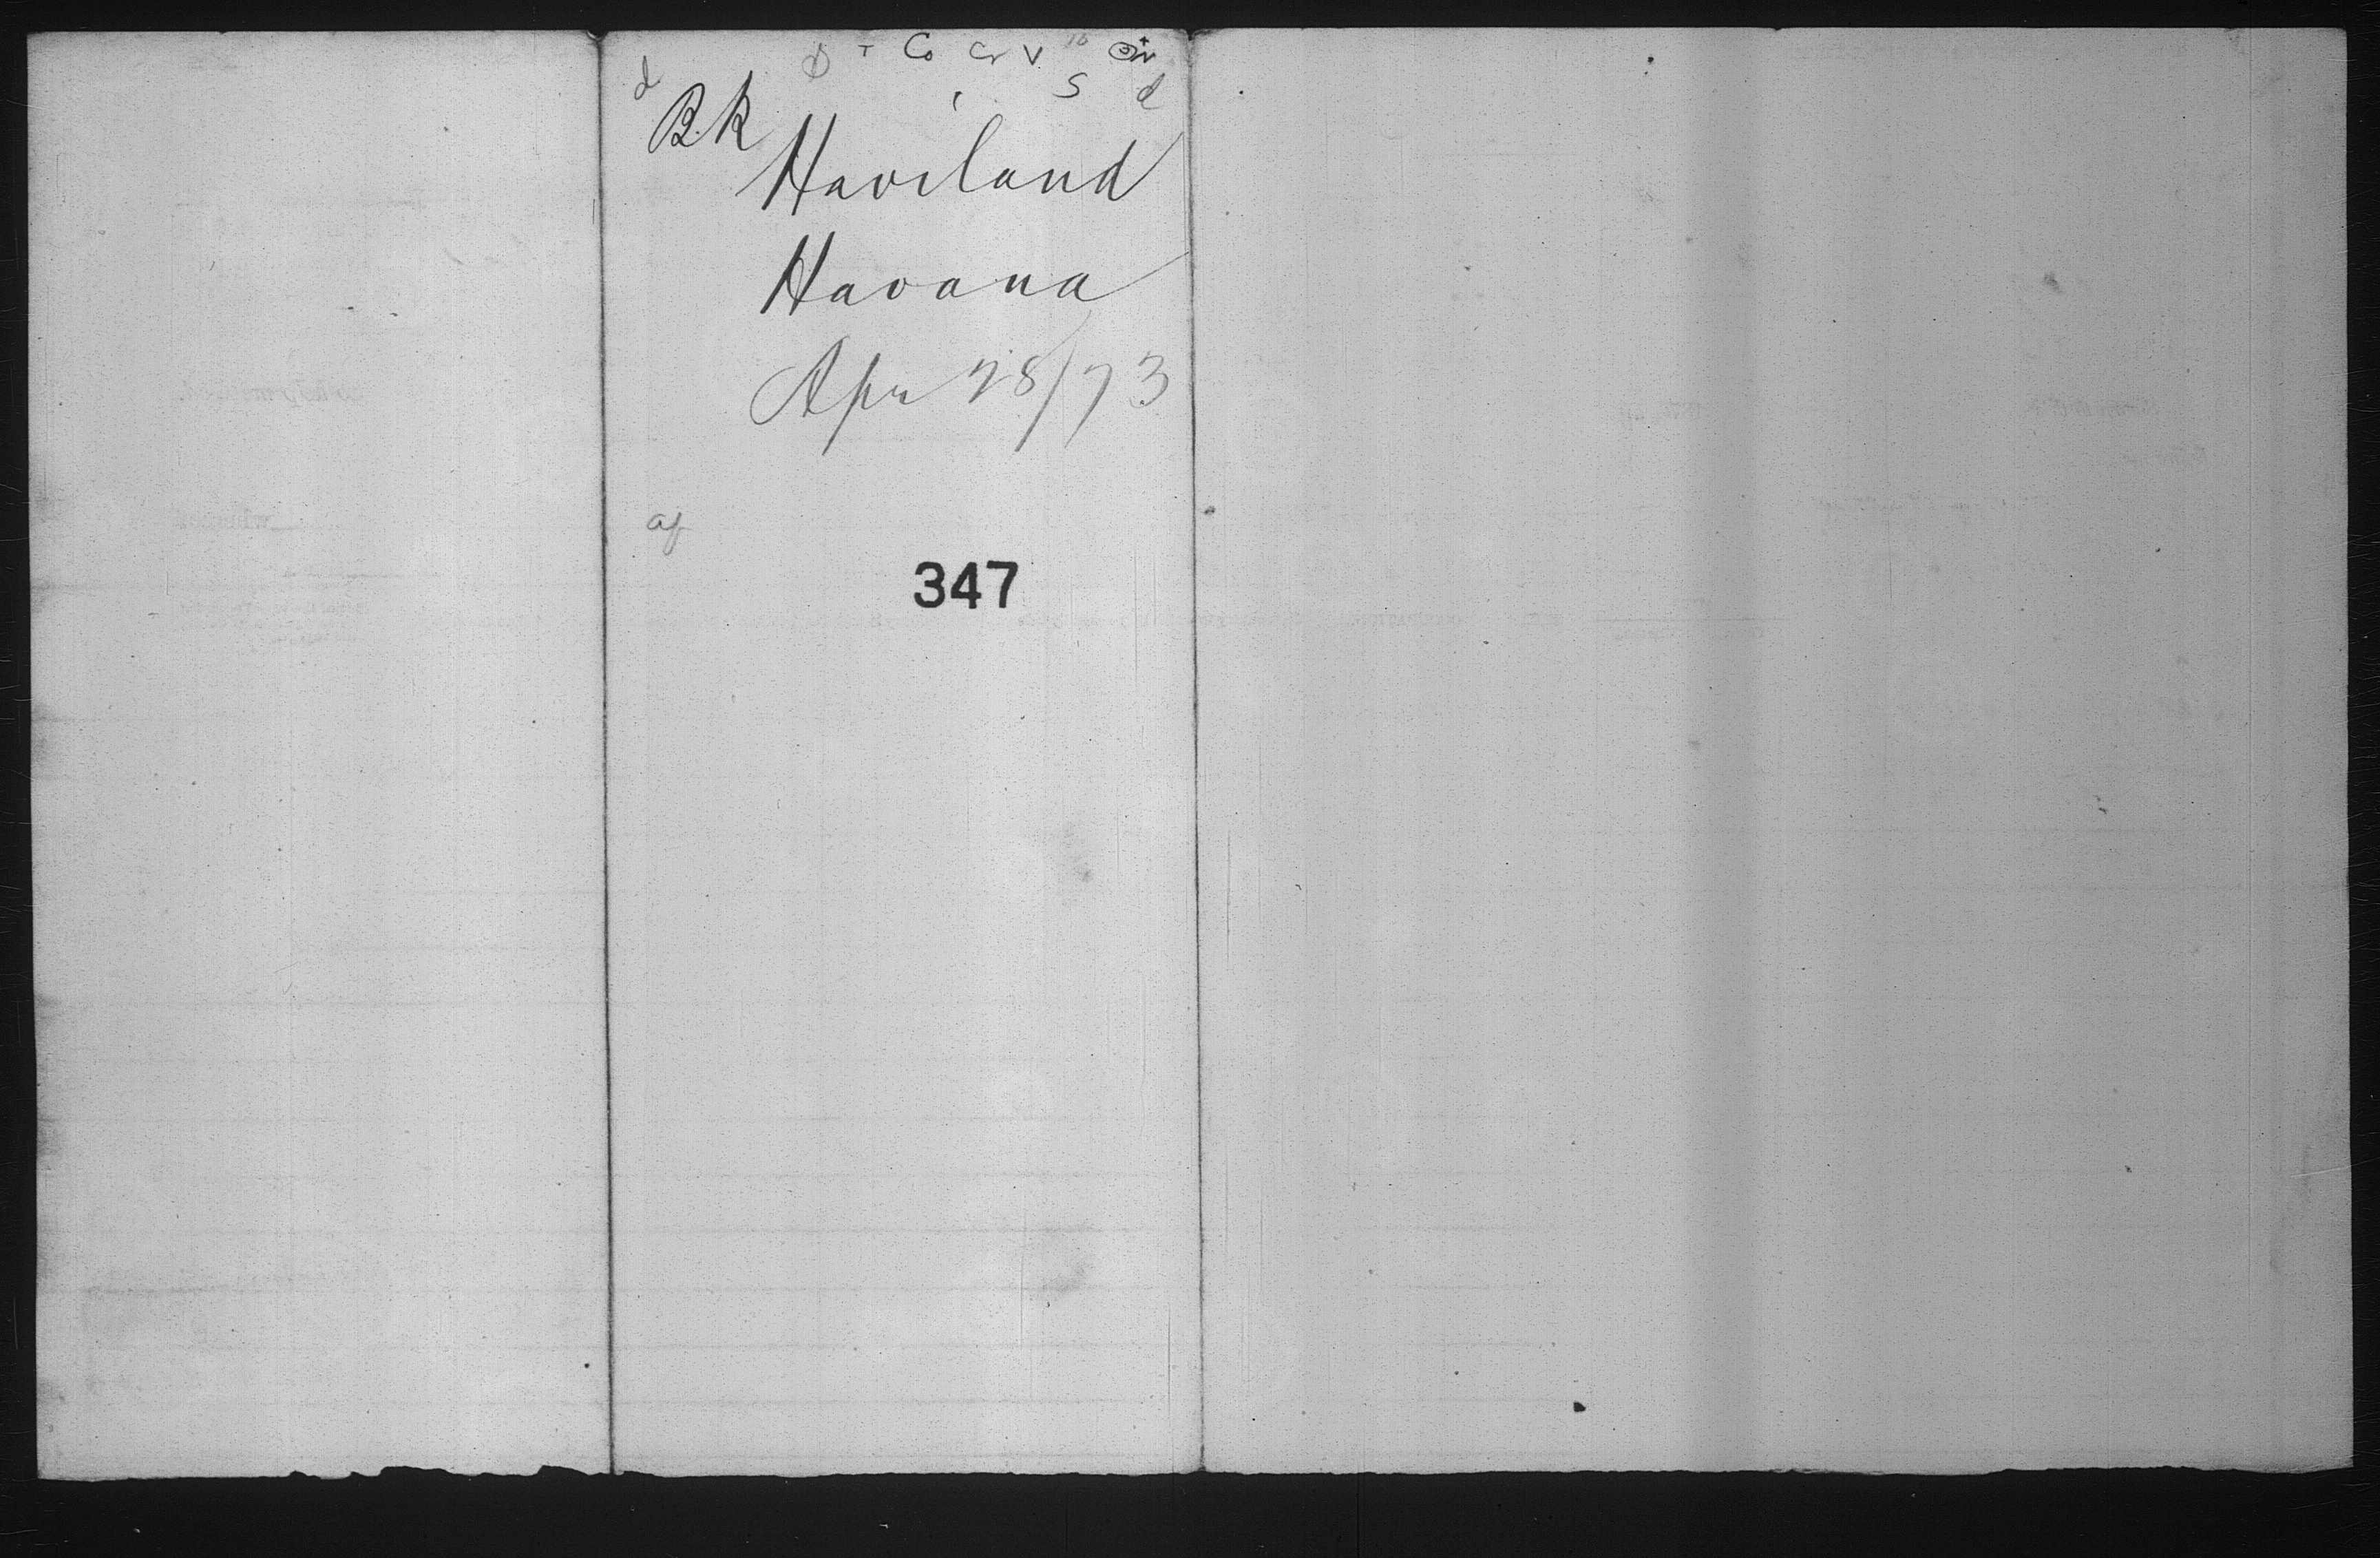 T Co Cr V
d S d
Bk
Haviland
Havana
Apr 28/73
347